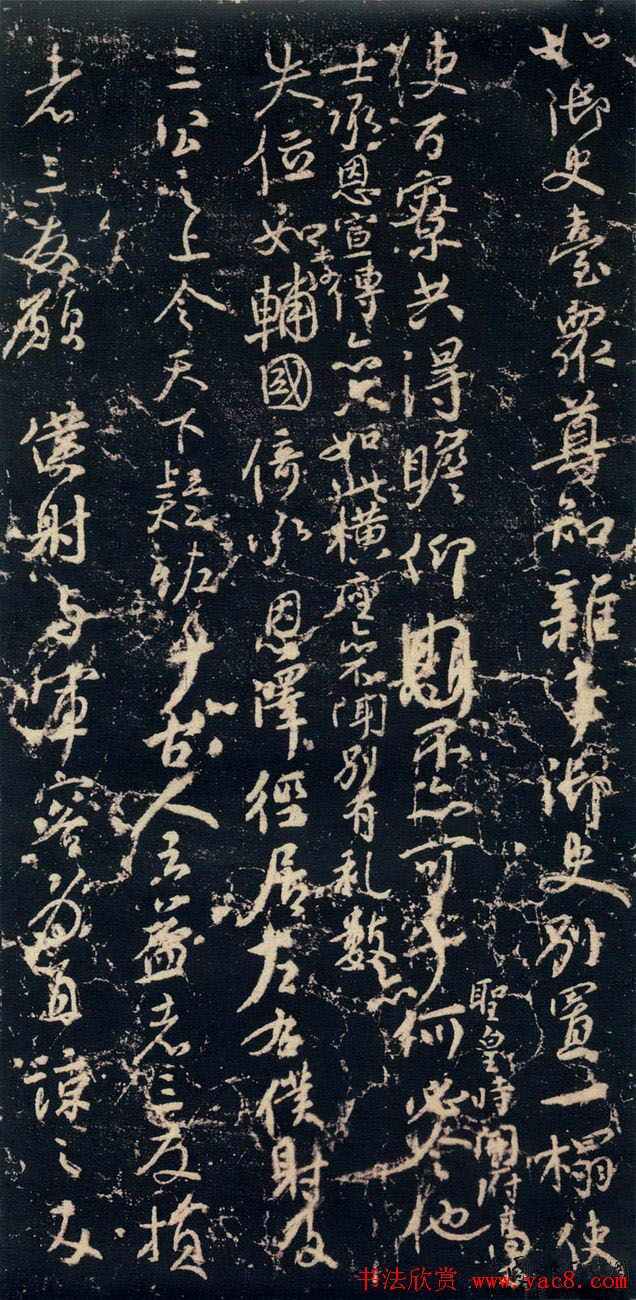 如御史臺眾尊知雜事御史別置一榻使
使百寮共得瞻仰不亦可乎何必令他
聖皇時開府高
士承恩宣傳亦只如此橫座亦不聞別有礼數亦
失位如李輔國倚承恩澤徑居左右僕射及
三公之上令天下疑怪乎古人云益者三友損
者三友願僕射与軍容為直諒之友
书法欣赏 www.yac8.com